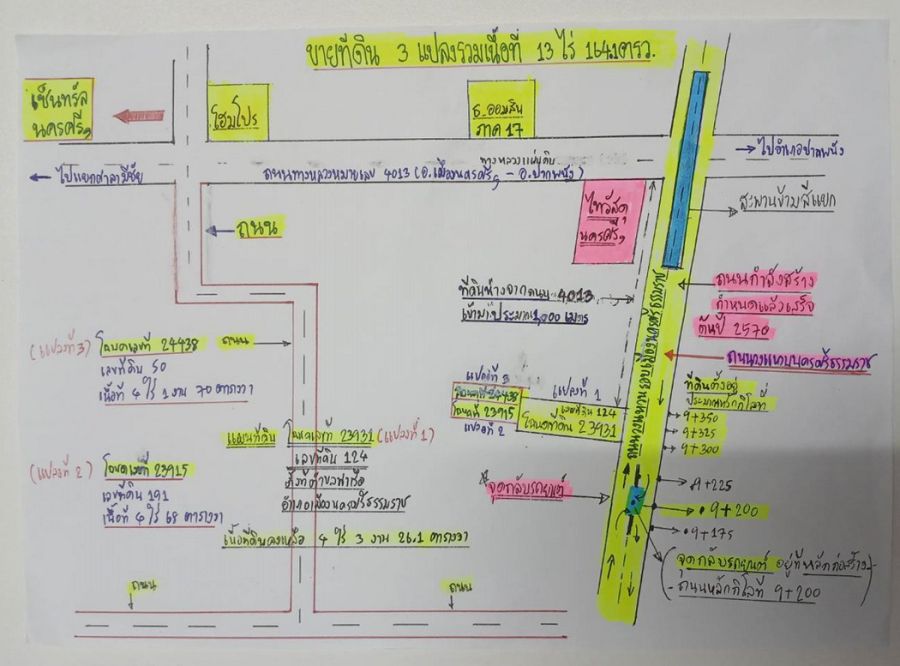 ขายที่ดิน 3 แปลงรวมเนื้อที่ 13 ไร่ 164.1 ตรว.
เซ็นทรัล
นครศรีฯ
โฮมโปร
ธ.ออมสิน
ภาค 17
ไปแยกศาลามีชัย
ทางหลวงแผ่นดิน
ถนนทางหลวงหมายเลข 4013 (อ.เมืองนครศรีฯ - อ.ปากพนัง)
ไปอำเภอปากพนัง
สะพานข้ามสี่แยก
ไทวัสดุ
นครศรีฯ
ถนน
ที่ดินห่างจากถนน 4013
เข้ามาประมาณ 1,000 เมตร
ถนนกำลังสร้าง
กำหนดแล้วเสร็จ
ต้นปี 2570
ถนนวงแหวนนครศรีธรรมราช
ถนนวงแหวนรอบเมืองนครศรีธรรมราช
(แปลงที่ 3) โฉนดเลขที่ 24438
เลขที่ดิน 50
เนื้อที่ 4 ไร่ 1 งาน 70 ตารางวา
ถนน
แปลงที่ 3
โฉนดที่ 24438
โฉนดที่ 23915
แปลงที่ 2
แปลงที่ 1
เลขที่ดิน 124
โฉนดที่ดิน 23931
ที่ดินตั้งอยู่
ประมาณหลักกิโลที่
9+350
9+325
9+300
9+225
9+200
9+175
(แปลงที่ 2) โฉนดเลขที่ 23915
เลขที่ดิน 191
เนื้อที่ 4 ไร่ 68 ตารางวา
แผนที่ดิน โฉนดเลขที่ 23931 (แปลงที่ 1)
เลขที่ดิน 124
ตั้งที่ตำบลท่าเรือ
อำเภอเมืองนครศรีธรรมราช
เนื้อที่ดินคงเหลือ 4 ไร่ 3 งาน 26.1 ตารางวา
จุดกลับรถยนต์
(จุดกลับรถยนต์ อยู่ที่หลักก่อสร้าง-
-ถนนหลักกิโลที่ 9+200)
ถนน
ถนน